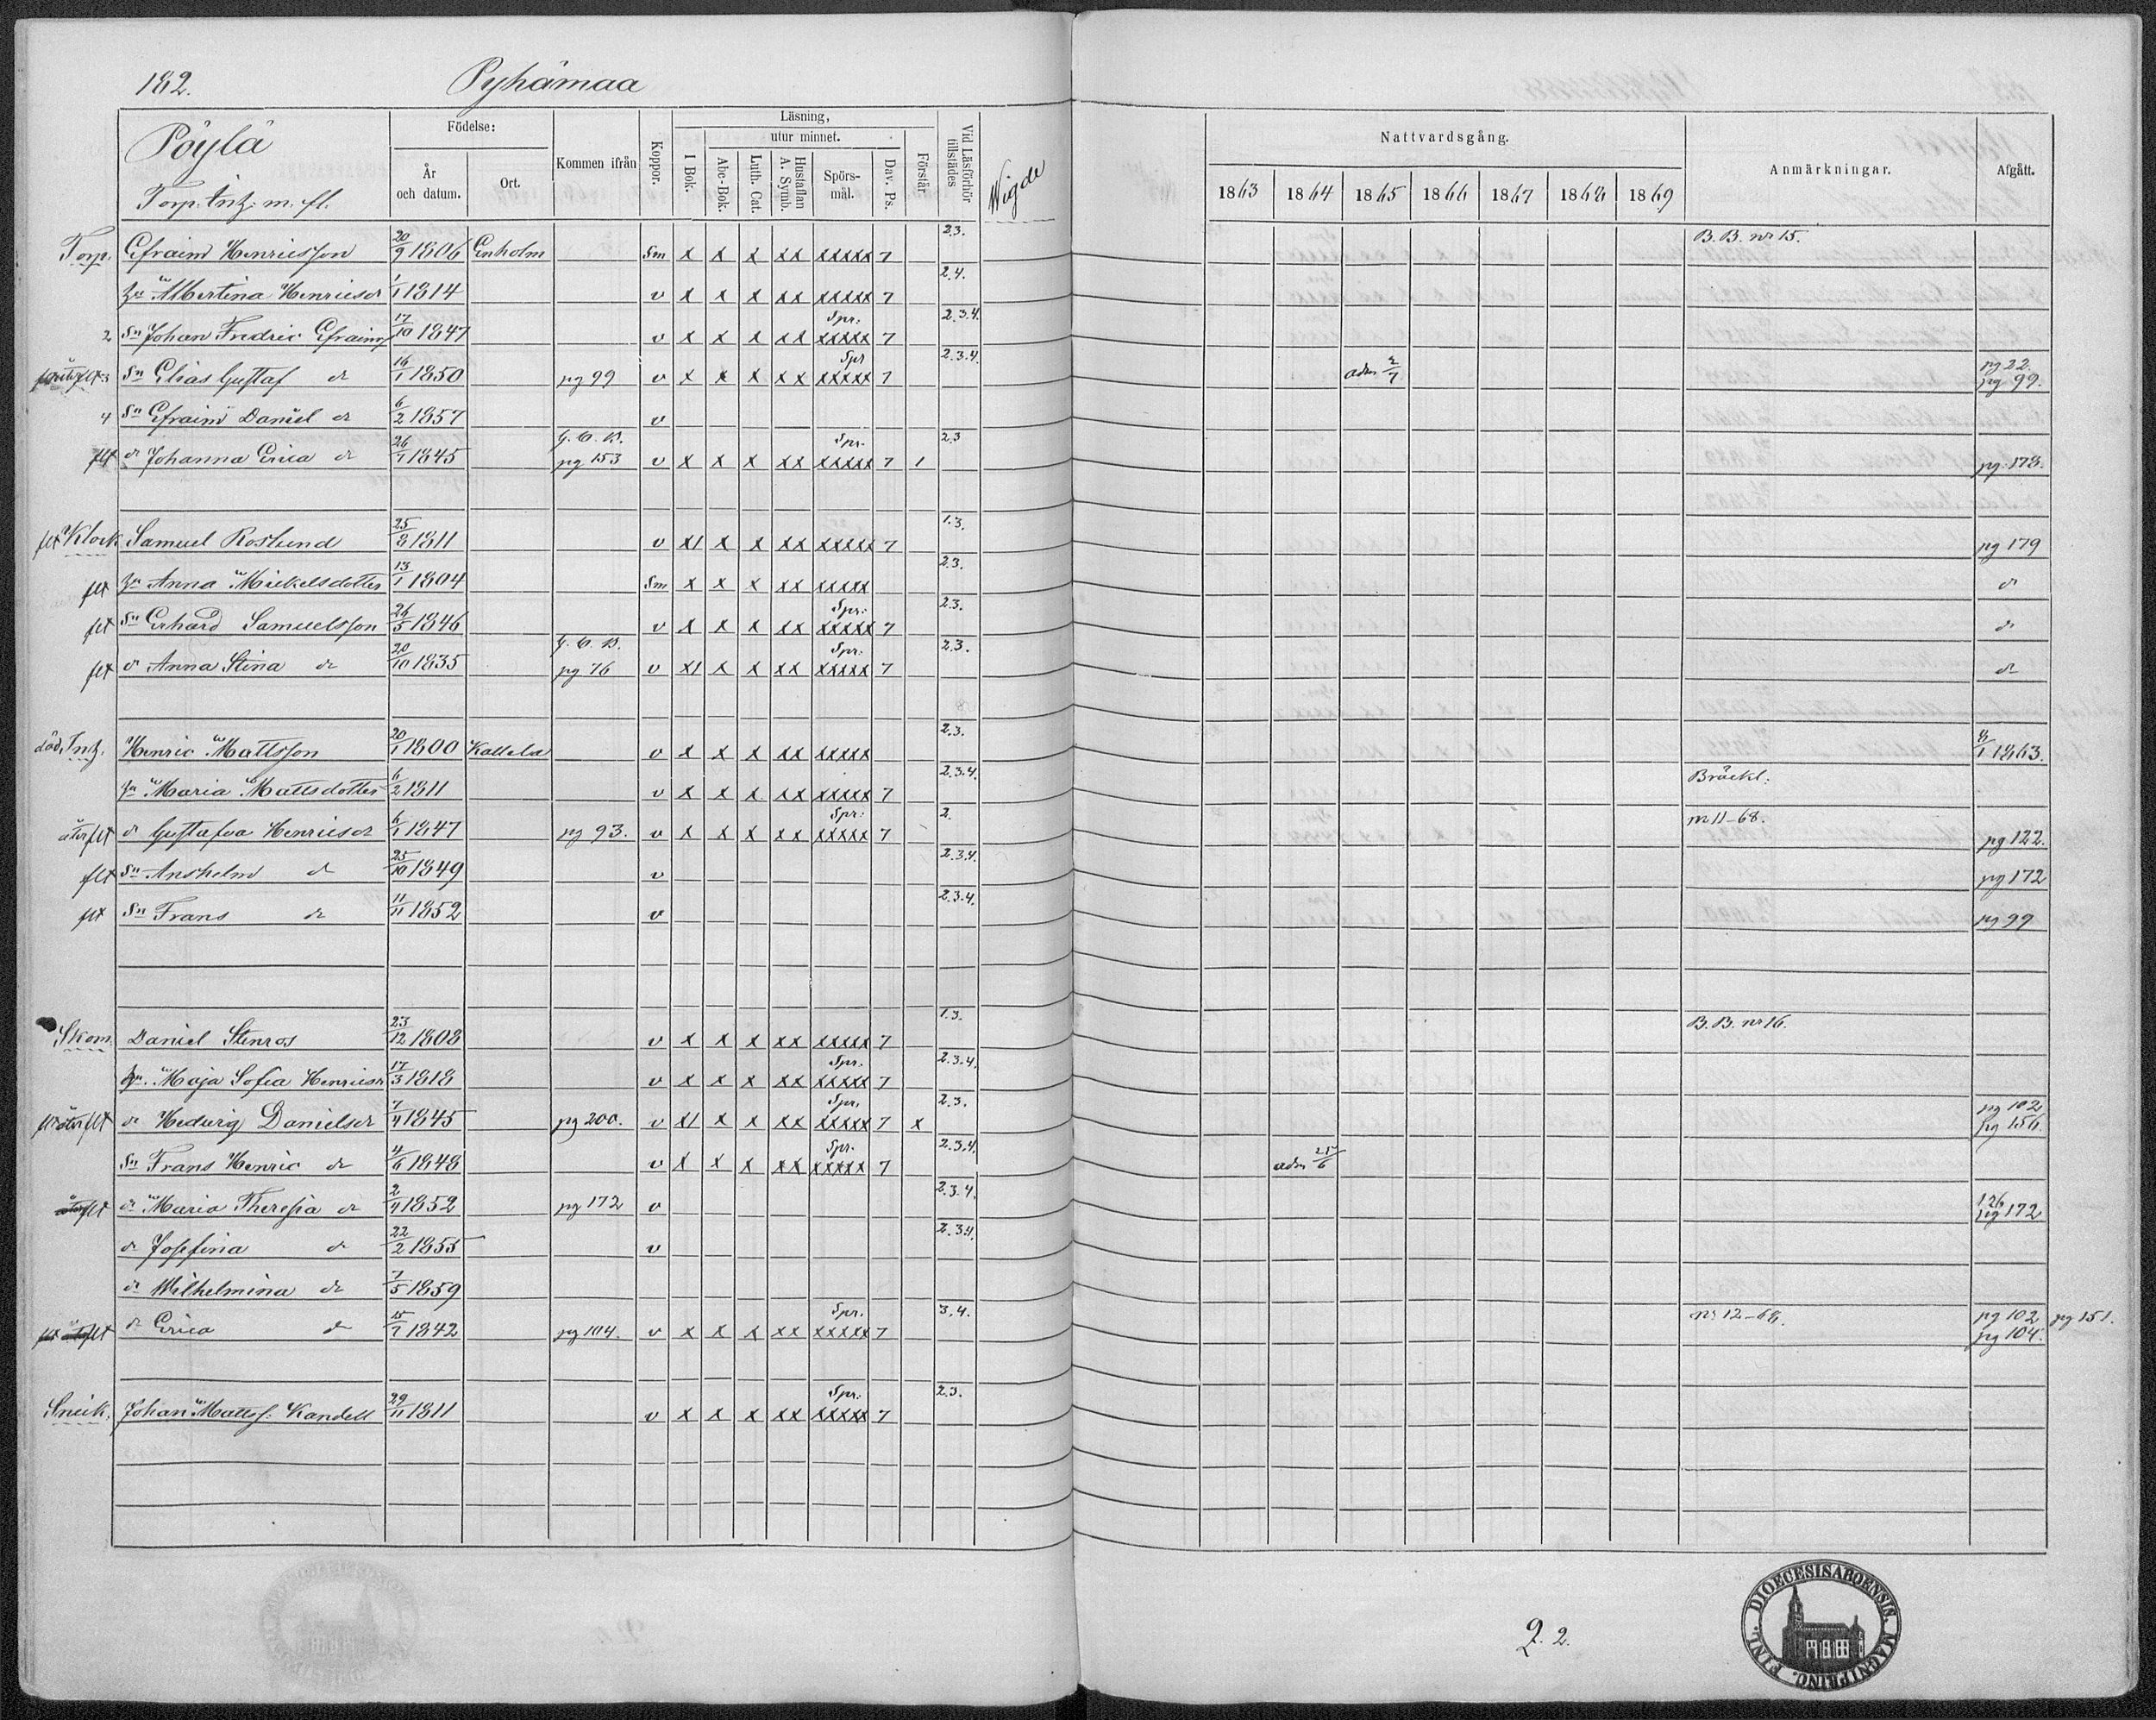 182. Pyhämaa
Pöylä
Torp. Inh: m: fl.
Födelse:
År och datum.
Ort.
Kommen ifrån
Koppor.
Läsning,
I Bok.
utur minnet.
Abc-Bok.
Luth. Cat.
Hustaflan A. Symb.
Spörs-mål.
Dav. Ps.
Förstår
Vid Läsförhör tillstädes
Wigde
Nattvardsgång.
1863 1864 1865 1866 1867 1868 1869
Anmärkningar.
Afgått.
Torp. Efraim Henricsson 20/9 1806 Enholm Sm x x x xx xxxxx 7 2.3. B. B. nr 15.
hu Albertina Henricsdr 1/1 1814 v x x x xx xxxxx 7 2.4.
2 Sn Johan Fredric Efraims 17/10 1847 v x x x xx Spr: xxxxx 7 2.3.4.
3 Sn Elias Gustaf dr 16/1 1850 pg 99 v x x x xx Spr xxxxx 7 2.3.4. adm 2/7 pg 22. pg 99.
4 Sn Efraim Daniel dr 6/2 1857 v
flt dr Johanna Erica dr 26/1 1845 G. C. B. pg 153 v x x x xx Spr. xxxxx 7 1 2.3 pg. 178.
flt Klock Samuel Roslund 25/8 1811 v x1 x x xx xxxxx 7 1.3. pg 179
flt hu Anna Mickelsdotter 13/1 1804 Sm x x x xx xxxxx 2.3. dr
flt Sn Erhard Samuelsson 26/5 1846 v x x x xx Spr: xxxxx 7 2.3. dr
flt dr Anna Stina dr 20/10 1835 G. C. B. pg 76 v x1 x x xx Spr. xxxxx 7 2.3. dr
död. Inh. Henric Mattsson 20/1 1800 Kallela v x x x xx xxxxx 2.3. 8/1 1863.
hu Maria Mattsdotter 6/2 1811 v x x x xx xxxxx 7 2.3.4. Bräckl.
åter flt dr Gustafva Henricsdr 6/1 1847 pg 93. v x x x xx Spr: xxxxx 7 2. nr 11-68. pg 122.
flt Sn Anshelm dr 25/10 1849 v 2.3.4. pg 172
flt Sn Frans dr 11/11 1852 v 2.3.4. pg 99
Skom. Daniel Stenros 23/12 1808 v x x x xx xxxxx 7 1.3. B. B. nr 16.
hu. Maja Sofia Henricsdr 17/3 1818 v x x x xx Spr. xxxxx 7 2.3.4.
åter flt dr Hedvig Danielsdr 7/4 1845 pg 200. v x1 x x xx Spr. xxxxx 7 x 2.3. pg 102 pg 156.
Sn Frans Henric dr 4/6 1848 v x x x xx Spr. xxxxx 7 2.3.4. adm 25/6
flt dr Maria Theresia dr 2/4 1852 pg 172 v 2.3.4. 126 pg 172
dr Josefina dr 22/2 1855 v 2.3.4.
dr Wilhelmina dr 7/5 1859
flt dr Erica dr 15/1 1842 pg 104. v x x x xx Spr. xxxxx 7 3.4. nr 12-68. pg 102 pg 104. pg 151.
Snick. Johan Matss: Kandell 29/11 1811 v x x x xx Spr: xxxxx 7 2.3.
2. 2.
DIOECESIS ABOENSIS. MAGNI PRINC. FINL.